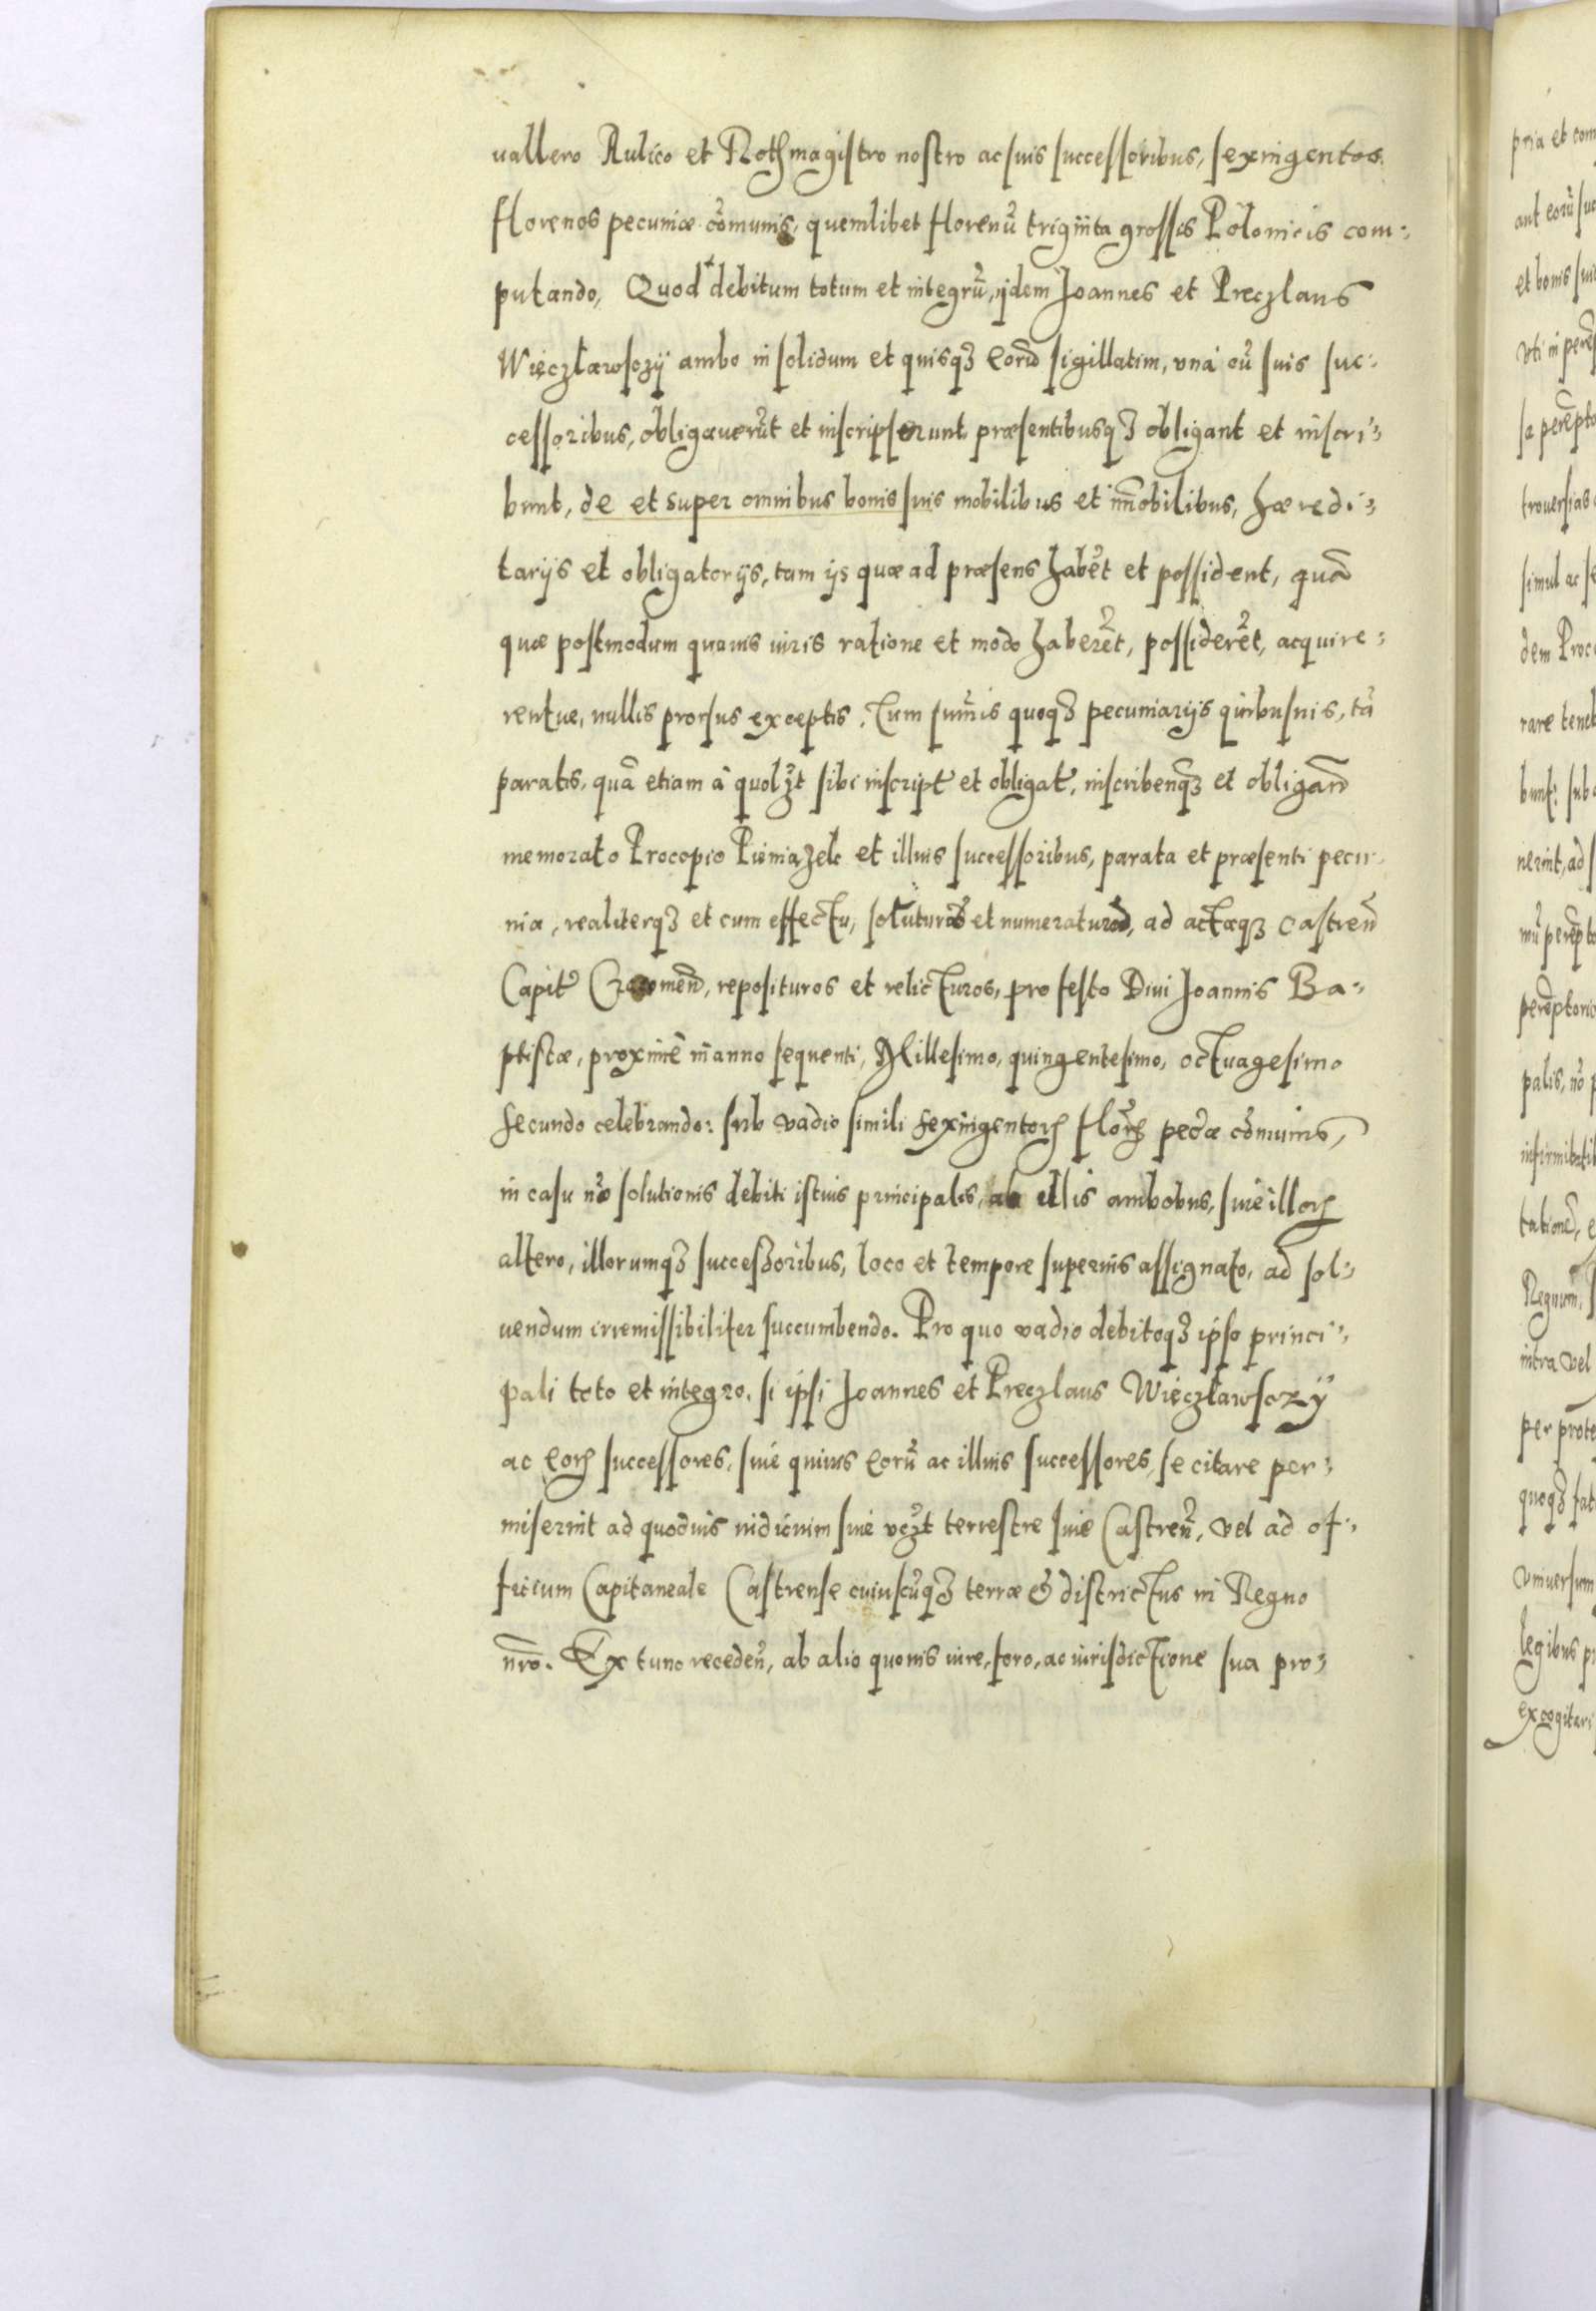 uallero Aulico et Rothmagistro nostro ac suis successoribus, sexingentos
florenos pecuniæ cõmunis, quemlibet florenũ triginta grossis Polonicis com-
putando, Quod debitum totum et integrũ, ijdem Joannes et Preczlaus
Więczławsczy ambo in solidum et quisq3 eorũ sigillatim, vná cũ suis suc-
cessoribus, obligauerũt et inscripserunt, præsentibusq3 obligant et inscri-
bunt, de et super omnibus bonis suis mobilibus et im̃obilibus, hæredi-
tarijs et obligatorijs, tam ijs quæ ad præsens habẽt et possident, quã
quæ postmodum quouis iuris ratione et modo haberẽt, possiderẽt, acquire-
rentue, nullis prorsus exceptis. Tum sum̃is quoq3 pecuniarijs quibusuis, tã
paratis, quã etiam à quol3t sibi inscript̃ et obligat̃, inscribenq̃3 et obligañ
memorato Procopio Pieniązek et illius successoribus, parata et præsenti pecu-
nia, realiterq3 et cum effectu, soluturos et numeraturos, ad actaq3 Castreñ
Capit̃ Cracouieñ, reposituros et relicturos, pro festo Diui Joannis Ba-
ptistæ, proximè in anno sequenti, Millesimo, quingentesimo, octuagesimo
secundo celebrando: sub vadio simili sexingentorꝝ florꝝ pecũæ cõmunis,
in casu nõ solutionis debiti istius principalis, ab illis ambobus, siue illorꝝ
altero, illorumq3 successoribus, loco et tempore superius assignato, ad sol-
uendum irremissibiliter succumbendo. Pro quo vadio debitoq3 ipso princi-
pali toto et integro, si ipsi Joannes et Preczlaus Więczławsczy
ac eorꝝ successores, siue quiuis eorũ ac illius successores, se citare per-
miserint ad quoduis iudicium siue vc3t terrestre siue Castreñ, vel ad of-
ficium Capitaneale Castrense cuiuscũq3 terræ & districtus in Regno
nr̃o. Ex tunc recedeñ, ab alio quouis iure, foro, ac iurisdictione sua pro-